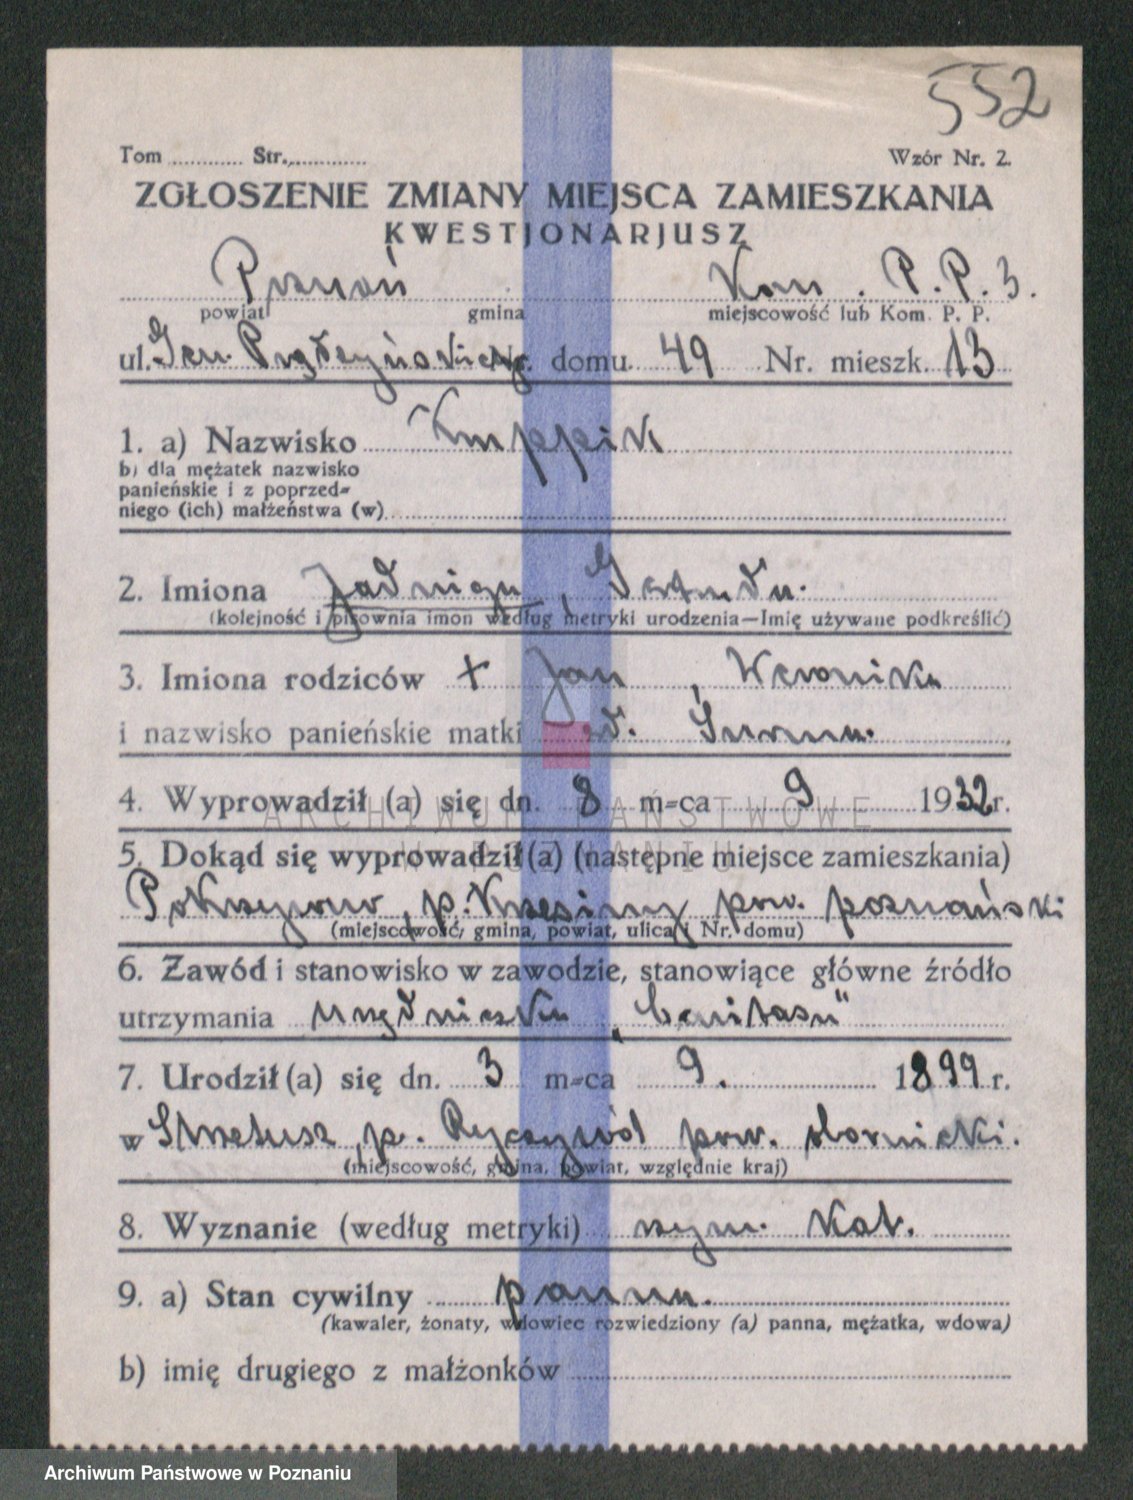 552
Tom ............ Str. ............ Wzór Nr. 2.
ZGŁOSZENIE ZMIANY MIEJSCA ZAMIESZKANIA
KWESTJONARJUSZ
Poznań Kom. P. P. 3.
powiat gmina miejscowość lub Kom. P. P.
ul. Gen. Prądzyńskiego Nr. domu 49 Nr. mieszk. 13
1. a) Nazwisko Kuppik
b) dla mężatek nazwisko
panieńskie i z poprzed=
niego (ich) małżeństwa (w)
2. Imiona Jadwiga, Gertruda.
(kolejność i pisownia imon według metryki urodzenia—Imię używane podkreślić)
3. Imiona rodziców + Jan, Weronika
i nazwisko panieńskie matki zd. Surma.
4. Wyprowadził (a) się dn. 8 m=ca 9 1932 r.
5. Dokąd się wyprowadził (a) (następne miejsce zamieszkania)
Pokrzywno, p. Krzesiny pow. poznański
(miejscowość, gmina, powiat, ulica i Nr. domu)
6. Zawód i stanowisko w zawodzie, stanowiące główne źródło
utrzymania urzędniczka „Caritasu"
7. Urodził (a) się dn. 3 m=ca 9. 1899 r.
w p. Ryczywół pow. obornicki.
(miejscowość, gmina, powiat, względnie kraj)
8. Wyznanie (według metryki) rzym. kat.
9. a) Stan cywilny panna.
(kawaler, żonaty, wdowiec rozwiedziony (a) panna, mężatka, wdowa)
b) imię drugiego z małżonków
ARCHIWUM PAŃSTWOWE
W POZNANIU
Archiwum Państwowe w Poznaniu